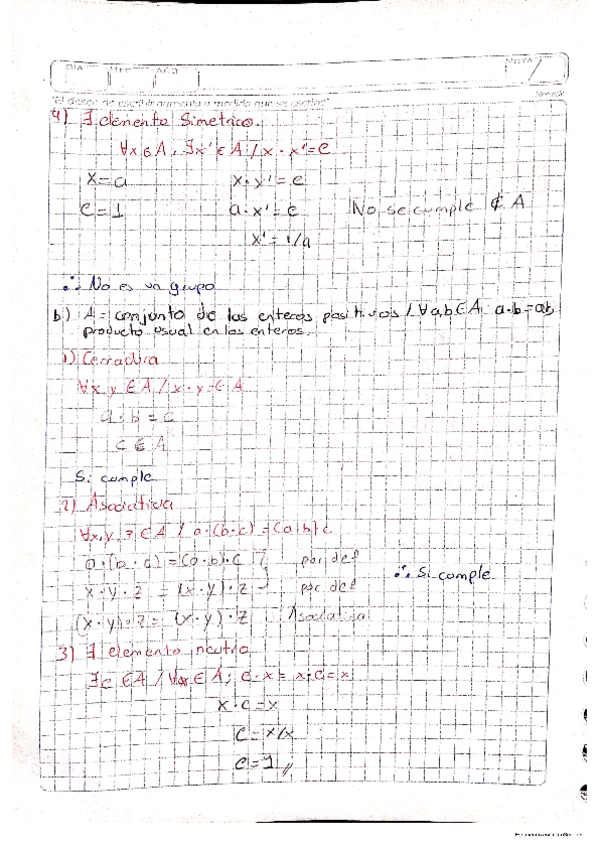 DIA MES AÑO
"el deseo de escribir aumenta a medida que se escribe"
4) ∃ elemento Simetrico.
∀x ∈ A, ∃x' ∈ A / x · x' = e
x = a x · x' = e
e = 1 a · x' = e No se cumple ∉ A
x' = 1/a
∴ No es un grupo
b) A = conjunto de los enteros positivos / ∀ a,b ∈ A a·b = ab,
producto usual en los enteros.
1) Cerradura
∀x, y ∈ A / x · y ∈ A
a · b = c
c ∈ A
Si cumple
2) Asociativa
∀x, y, z ∈ A / a·(b·c) = (a·b)·c
a·(b·c) = (a·b)·c por def
x · y · z = (x · y) · z por def ∴ Si cumple
(x · y) · z = (x · y) · z Asociativa
3) ∃ elemento neutro
∃e ∈ A / ∀x ∈ A; e · x = x · e = x
x · e = x
e = x/x
e = 1